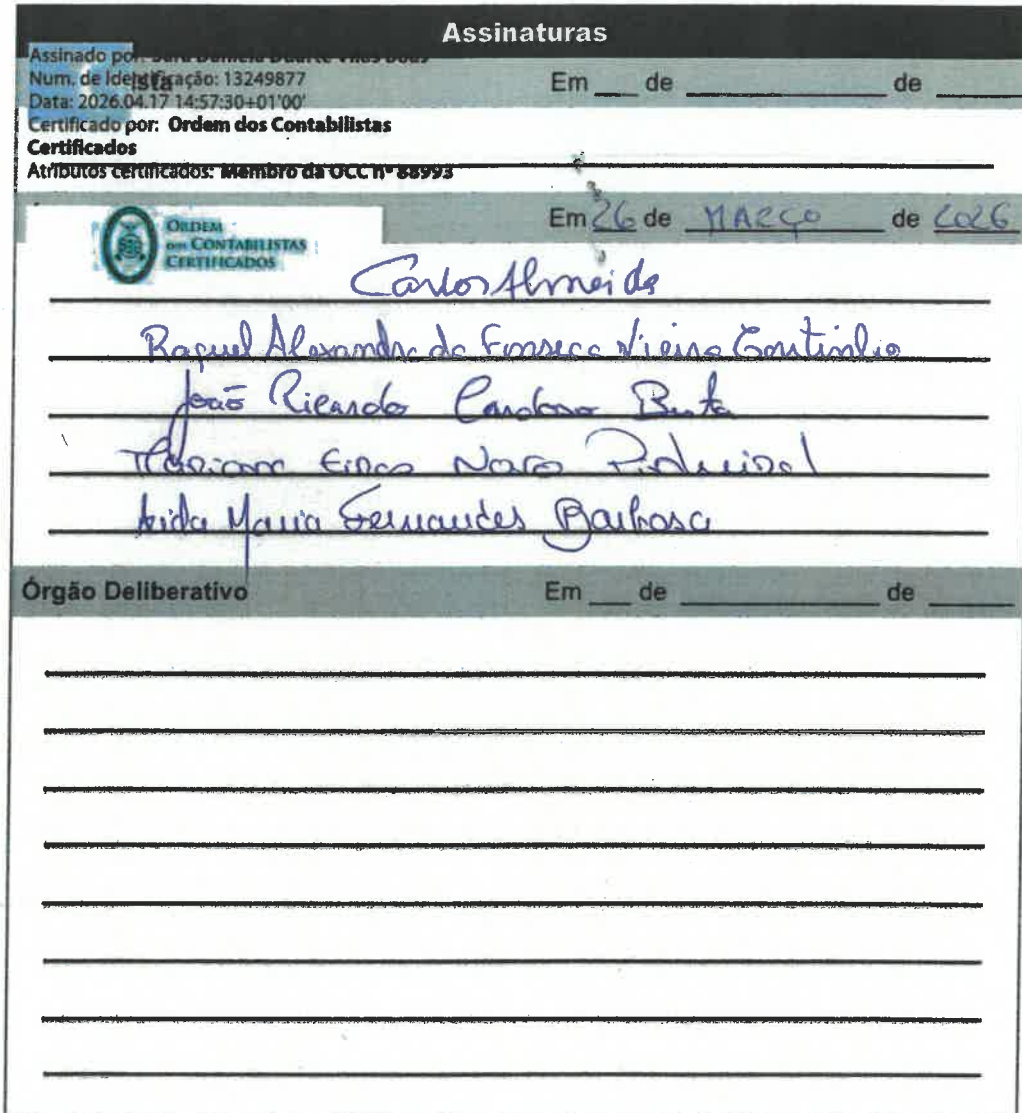 Assinaturas
Assinado por: Sara Daniela Duarte Vilas Boas
Num. de Identificação: 13249877
ista Em ___ de ___ de ___
Data: 2026.04.17 14:57:30+01'00'
Certificado por: Ordem dos Contabilistas
Certificados
Atributos certificados: Membro da OCC nº 88993
Em 26 de MARÇO de 2026
ORDEM
DOS CONTABILISTAS
CERTIFICADOS
Carlos Almeida
Raquel Alexandra da Fonseca Vieira Coutinho
João Ricardo Cardoso
Mariana
Aida Maria Fernandes Barbosa
Órgão Deliberativo Em ___ de ___ de ___